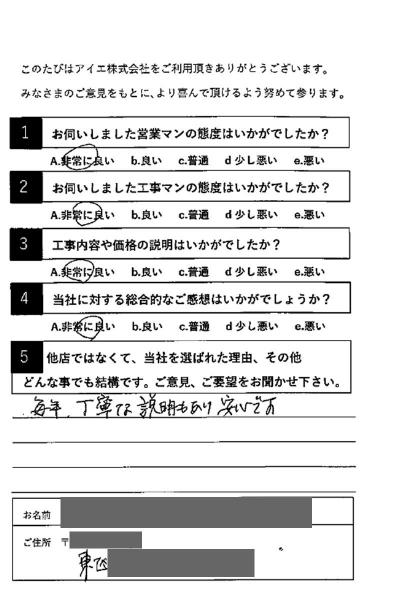 このたびはアイエ株式会社をご利用頂きありがとうございます。
みなさまのご意見をもとに、より喜んで頂けるよう努めて参ります。
1 お伺いしました営業マンの態度はいかがでしたか?
A.非常に良い b.良い c.普通 d少し悪い e.悪い
2 お伺いしました工事マンの態度はいかがでしたか?
A.非常に良い b.良い c.普通 d少し悪い e.悪い
3 工事内容や価格の説明はいかがでしたか?
A.非常に良い b.良い c.普通 d少し悪い e.悪い
4 当社に対する総合的なご感想はいかがでしょうか?
A.非常に良い b.良い c.普通 d少し悪い e.悪い
5 他店ではなくて、当社を選ばれた理由、その他
どんな事でも結構です。ご意見、ご要望をお聞かせ下さい。
毎年、丁寧な説明もあり安心です
お名前
ご住所 〒